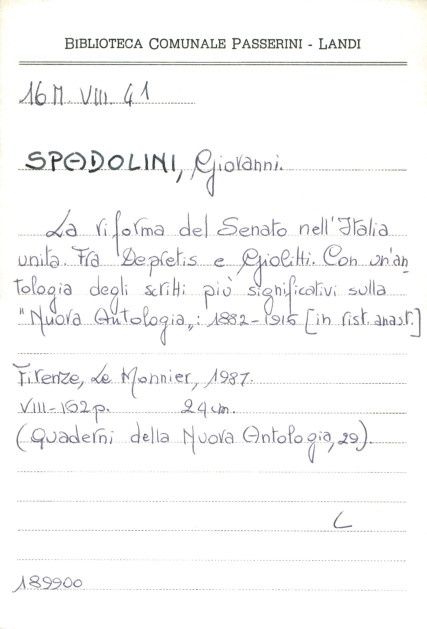 BIBLIOTECA COMUNALE PASSERINI - LANDI
16 M. VIII. 41
SPADOLINI, Giovanni.
La riforma del Senato nell'Italia
unita. Fra Depretis e Giolitti. Con un'an
tologia degli scritti più significativi sulla
"Nuova Antologia„: 1882-1915 [in rist. anast.]
Firenze, Le Monnier, 1987.
VIII-162 p. 24 cm.
(Quaderni della Nuova Antologia, 29).
L
189900